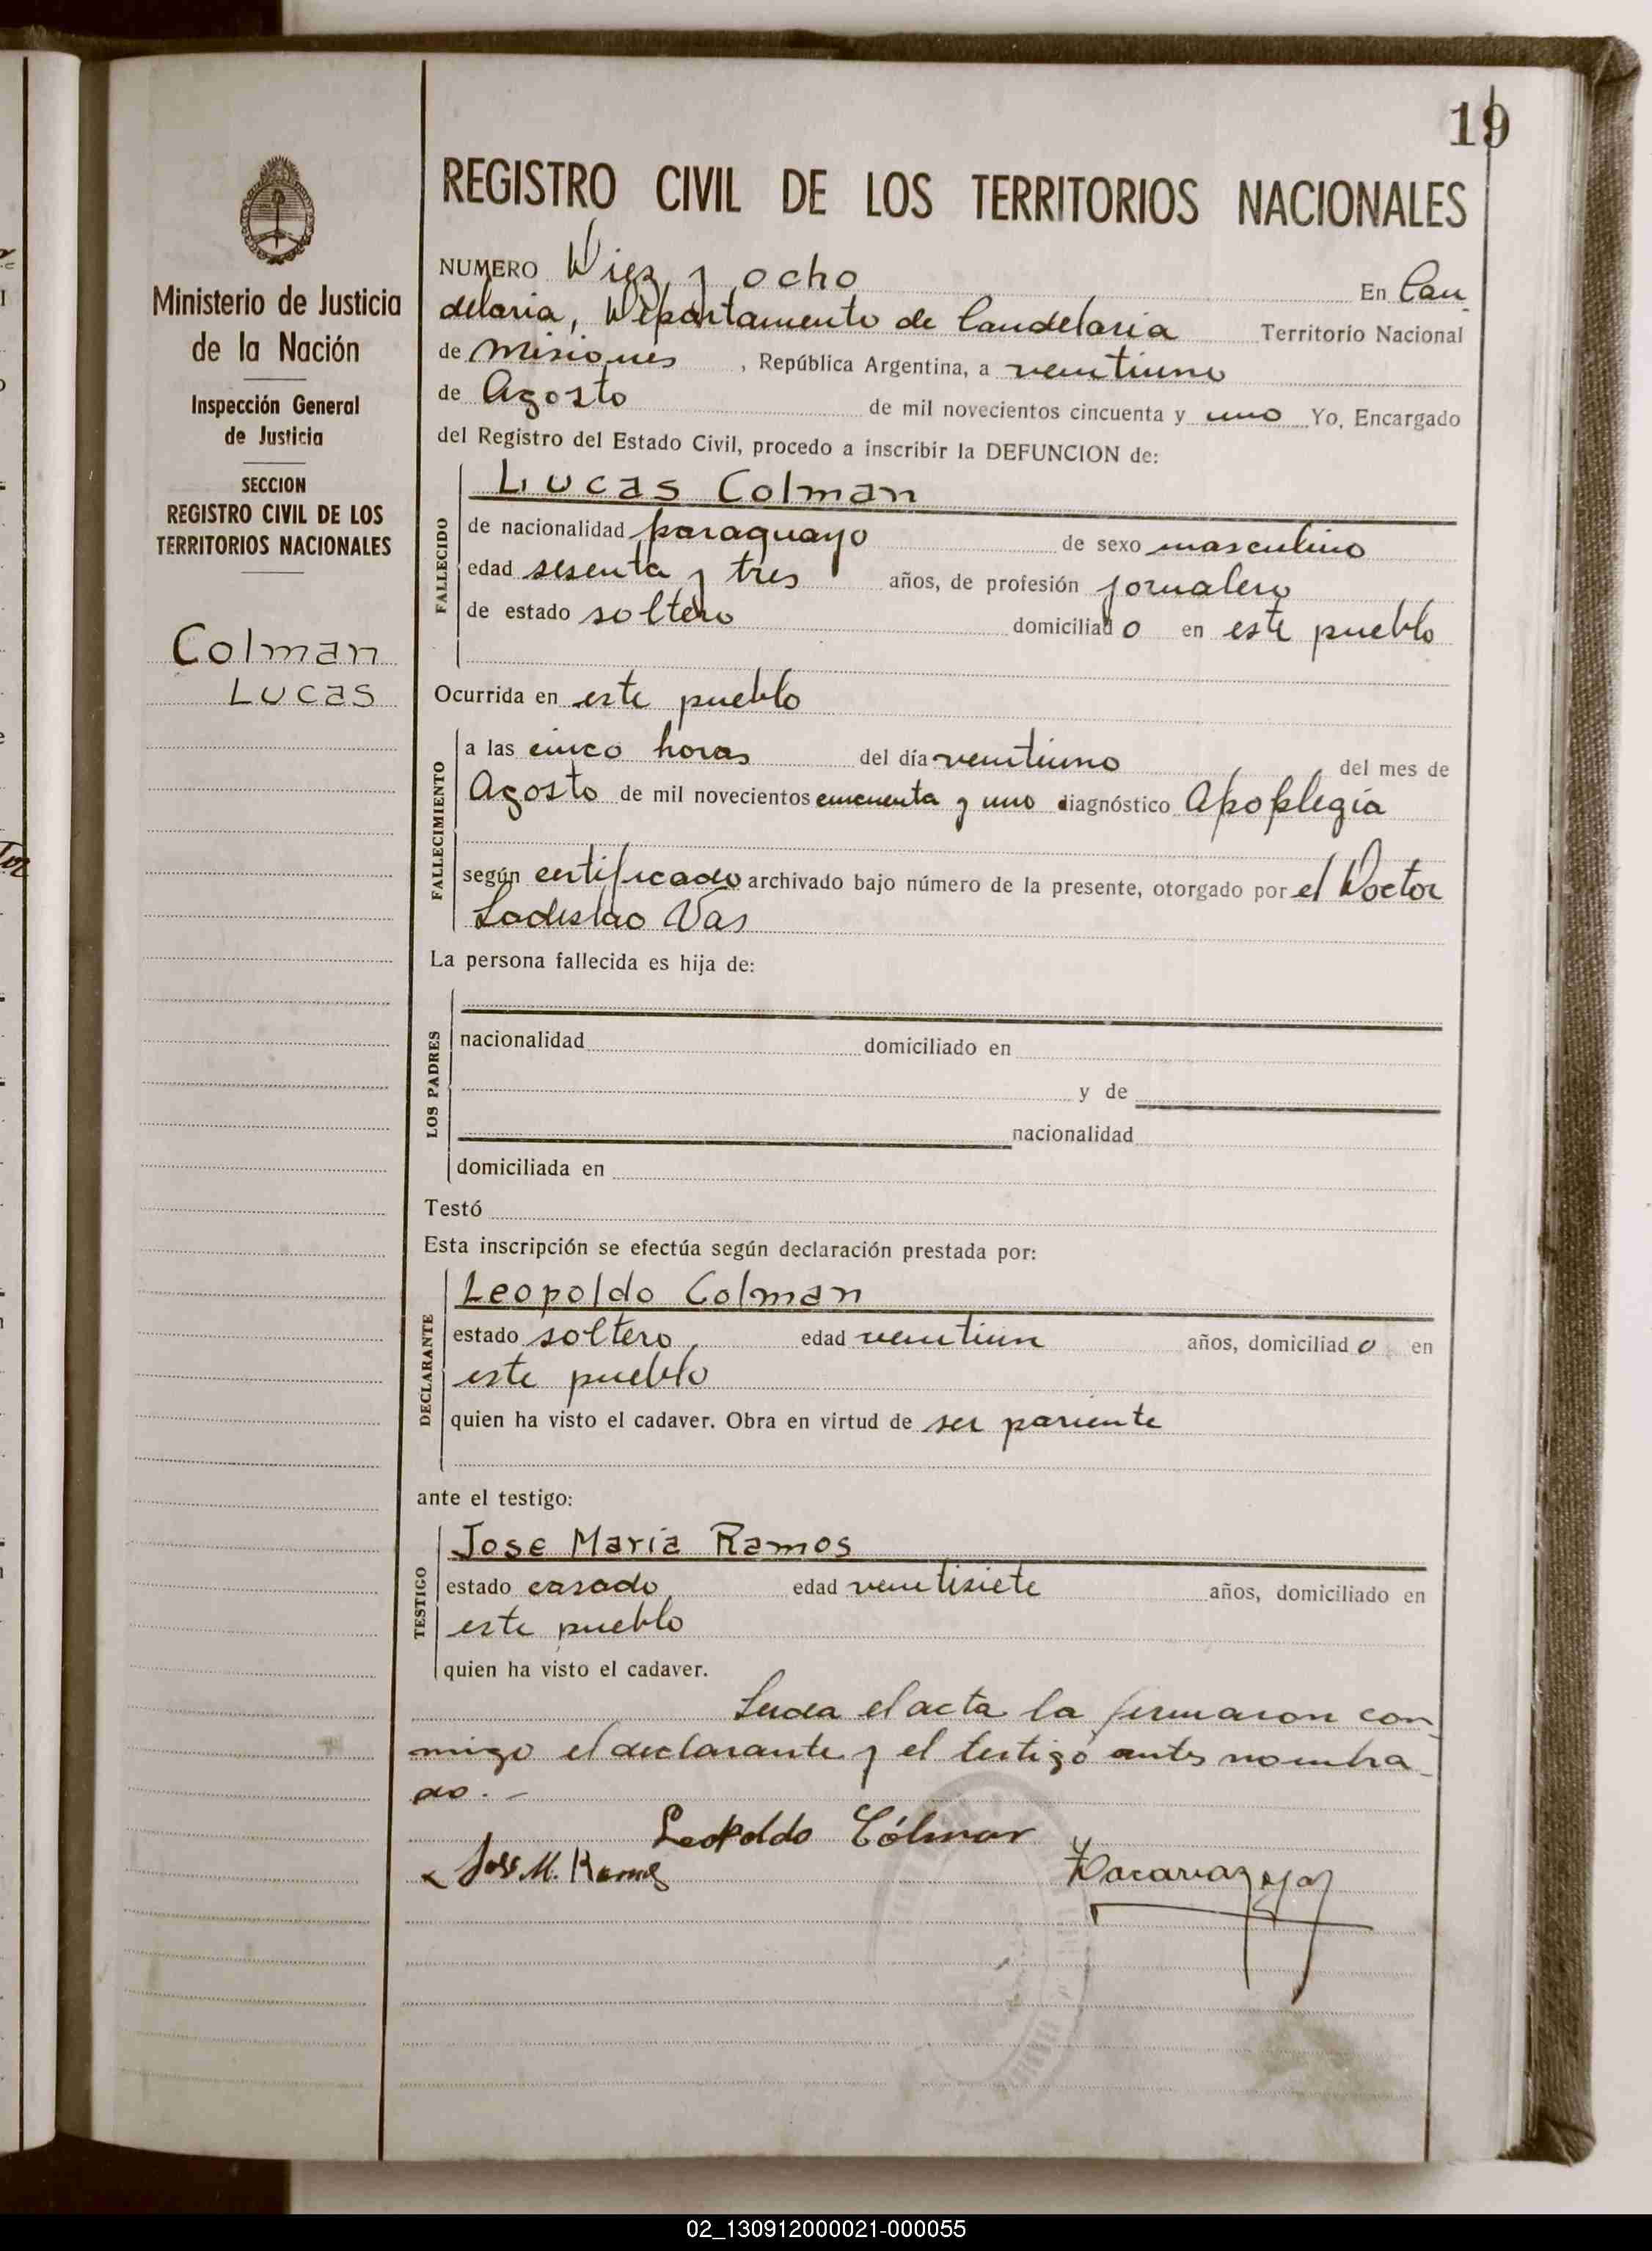 19
REGISTRO CIVIL DE LOS TERRITORIOS NACIONALES
Ministerio de Justicia
de la Nación
Inspección General
de Justicia
SECCION
REGISTRO CIVIL DE LOS
TERRITORIOS NACIONALES
Colman
Lucas
NUMERO Diez y ocho En Can
delaria, Departamento de Candelaria Territorio Nacional
de Misiones, República Argentina, a veintiuno
de Agosto de mil novecientos cincuenta y uno Yo, Encargado
del Registro del Estado Civil, procedo a inscribir la DEFUNCION de:
FALLECIDO
Lucas Colman
de nacionalidad paraguayo de sexo masculino
edad sesenta y tres años, de profesión jornalero
de estado soltero domiciliado en este pueblo
Ocurrida en este pueblo
FALLECIMIENTO
a las cinco horas del día veintiuno del mes de
Agosto de mil novecientos cincuenta y uno diagnóstico Apoplegia
según certificado archivado bajo número de la presente, otorgado por el Doctor
Ladislao Vas
La persona fallecida es hija de:
LOS PADRES
nacionalidad domiciliado en
y de
nacionalidad
domiciliada en
Testó
Esta inscripción se efectúa según declaración prestada por:
DECLARANTE
Leopoldo Colman
estado soltero edad veintiun años, domiciliado en
este pueblo
quien ha visto el cadaver. Obra en virtud de ser pariente
ante el testigo:
TESTIGO
Jose Maria Ramos
estado casado edad veintisiete años, domiciliado en
este pueblo
quien ha visto el cadaver.
Leida el acta la firmaron con
migo el declarante y el testigo antes nombra
do.-
Leopoldo Cólman
José M. Ramos
02_130912000021-000055